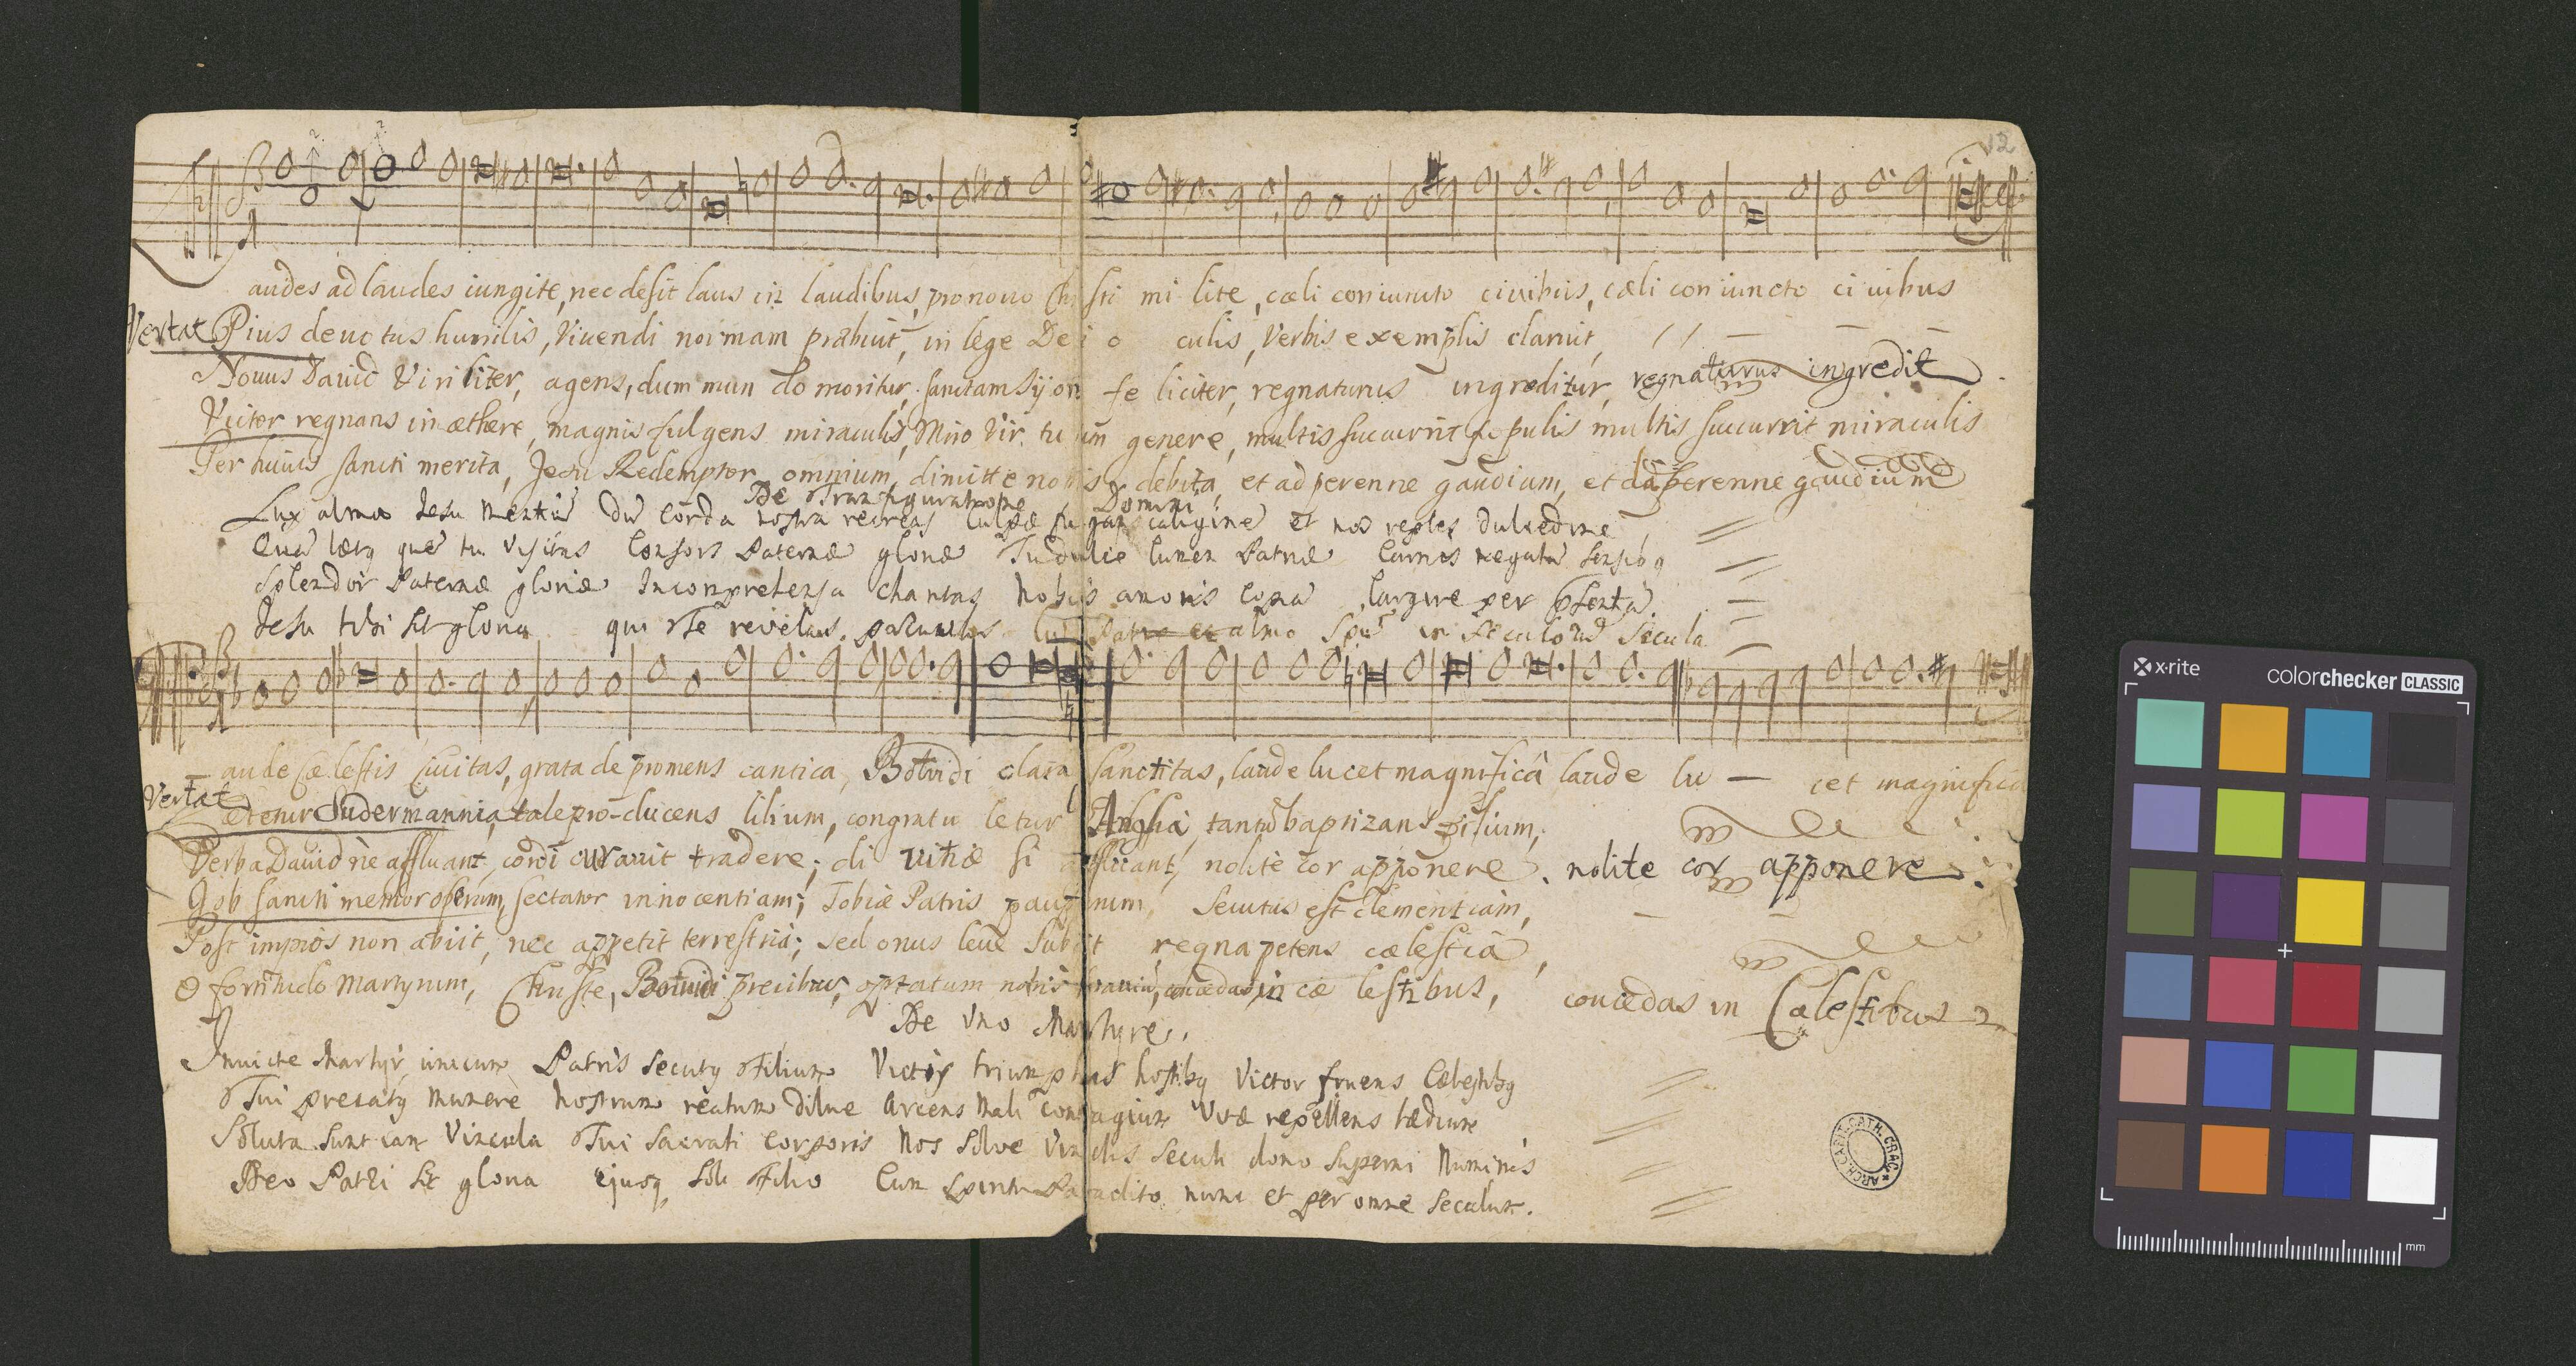 12
audes ad laudes iungite, nec desit laus in laudibus, pro nouo Christi mi lite, cæli coniuncto ciuibus, cæli con iuncto ci uibus
Vertat Pius deuotus humilis, Viuendi normam præbuit, in lege Dei o culis, Verbis exemplis claruit,
Nouus Dauid Viriliter, agens, dum mun do moritur, sanctam Syon fe liciter, regnaturus ingreditur, regnaturus ingredit
Victor regnans in æthere, magnis fulgens miraculis, Miro Vir tutum genere, multis succurrit populis multis succurrit miraculis
Per huius sancti merita, Jesu Redemptor omnium, dimitte nobis debita, et ad perenne gaudium, et ad perenne gaudium
De Transfiguratione Domini
Lux alma Jesu Mentiũ dũ corda nostra recreas culpæ fugans caliginẽ et nos reples dulcedine
Quã lætq quẽ tu Visitas Consors Paternæ gloriæ Tu dulce lumen Patriæ Carnis negatũ sensibq
Splendor Paternæ gloriæ Inconprehensa charitas Nobis amoris copiã largire per
Jesu tibi sit gloria qui Te revelas parvulis cũ Patre et almo Spũ in seculorũ Secula
aude Cælestis Ciuitas, grata de promens cantica, Botuidi clara sanctitas, laude lucet magnificâ laude lu — cet magnifica
Vertat
ætetur Sudermannia, tale pro-ducens lilium, congratu letur Anglia, tantũ baptizans filium,
Verba Dauid nè affluant, cordi curauit tradere; di uitiæ si affluant, nolite cor apponere. nolite cor apponere.
Job sancti memor operum, sectator innocentiam; Tobiæ Patris pauperum, Secutus est clementiam,
Post impios non abiit, nec appetit terrestria; sed onus leue subiit regna petens cælestia,
O fortitudo Martyrum, Christe, Botuidi precibus, optatum nobis brauiũ, concedas in cæ lestibus, concedas in Cælestibus
De Vno Martyre.
Inuicte Martyr, unicum Patris secutq Filium Victis triumphas hostibq Victor fruens Cælestibq
Tui precatq Munere Nostrum reatum dilue Arcens Mali contagium Vitæ repellens tædium
Soluta sunt iam Vincula Tui sacrati Corporis Nos solve Vinclis Seculi dono Superni Numinis
Deo Patri sit gloria ejusq Soli Filio Cum Spiritu Paraclito nunc et per omne Seculum.
ARCH. CAPIT. CATH. CRAC.
x·rite
colorchecker CLASSIC
mm